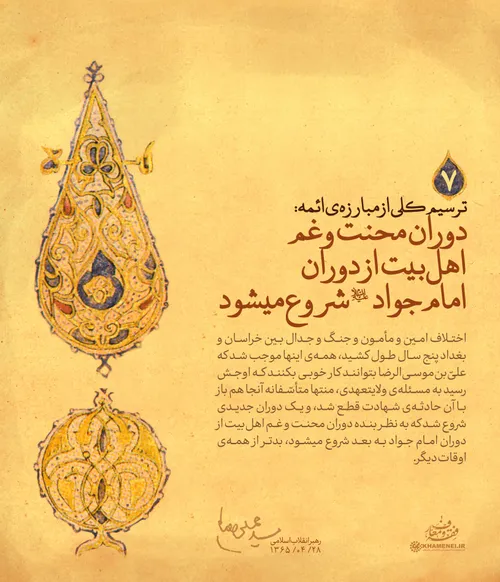 ۷
ترسیم کلی از مبارزه‌ی ائمه:
دوران محنت و غم
اهل بیت از دوران
امام جواد علیه‌السلام شروع میشود
اختلاف امین و مأمون و جنگ و جدال بین خراسان و
بغداد پنج سال طول کشید، همه‌ی اینها موجب شد که
علیّ‌بن‌موسی‌الرضا بتوانند کار خوبی بکنند که اوجش
رسید به مسئله‌ی ولایتعهدی، منتها متأسّفانه آنجا هم باز
با آن حادثه‌ی شهادت قطع شد، و یک دوران جدیدی
شروع شد که به نظر بنده دوران محنت و غم اهل بیت از
دوران امام جواد به بعد شروع میشود، بدتر از همه‌ی
اوقات دیگر.
رهبر انقلاب اسلامی
۱۳۶۵/۰۴/۲۸
KHAMENEI.IR